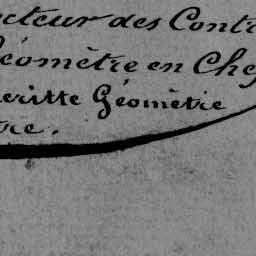 cteur des Contr
Géomètre en Chef
eritte Géomètre
tre.